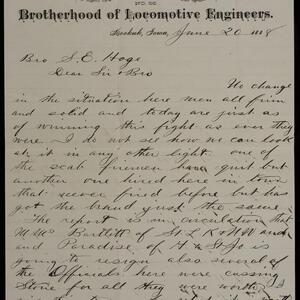 Brotherhood of Locomotive Engineers.
Keokuk, Iowa, June 20 1888
Bro S. E. Hoge
Dear Sir & Bro
No change
in the situation here men all firm
and solid and today are just as
of winning this fight as ever they
were. I do not see how we can look
at it in any other light. one of
the scab firemen have quit but
another one hired here in town
that never fired before but has
got the brand just the same.
The report is in circulation that
Bartlett of St L K & N W and
Paradise of H & St Jo is
going to resign also several of
the Officials here were cussing
Stone for all they were worth